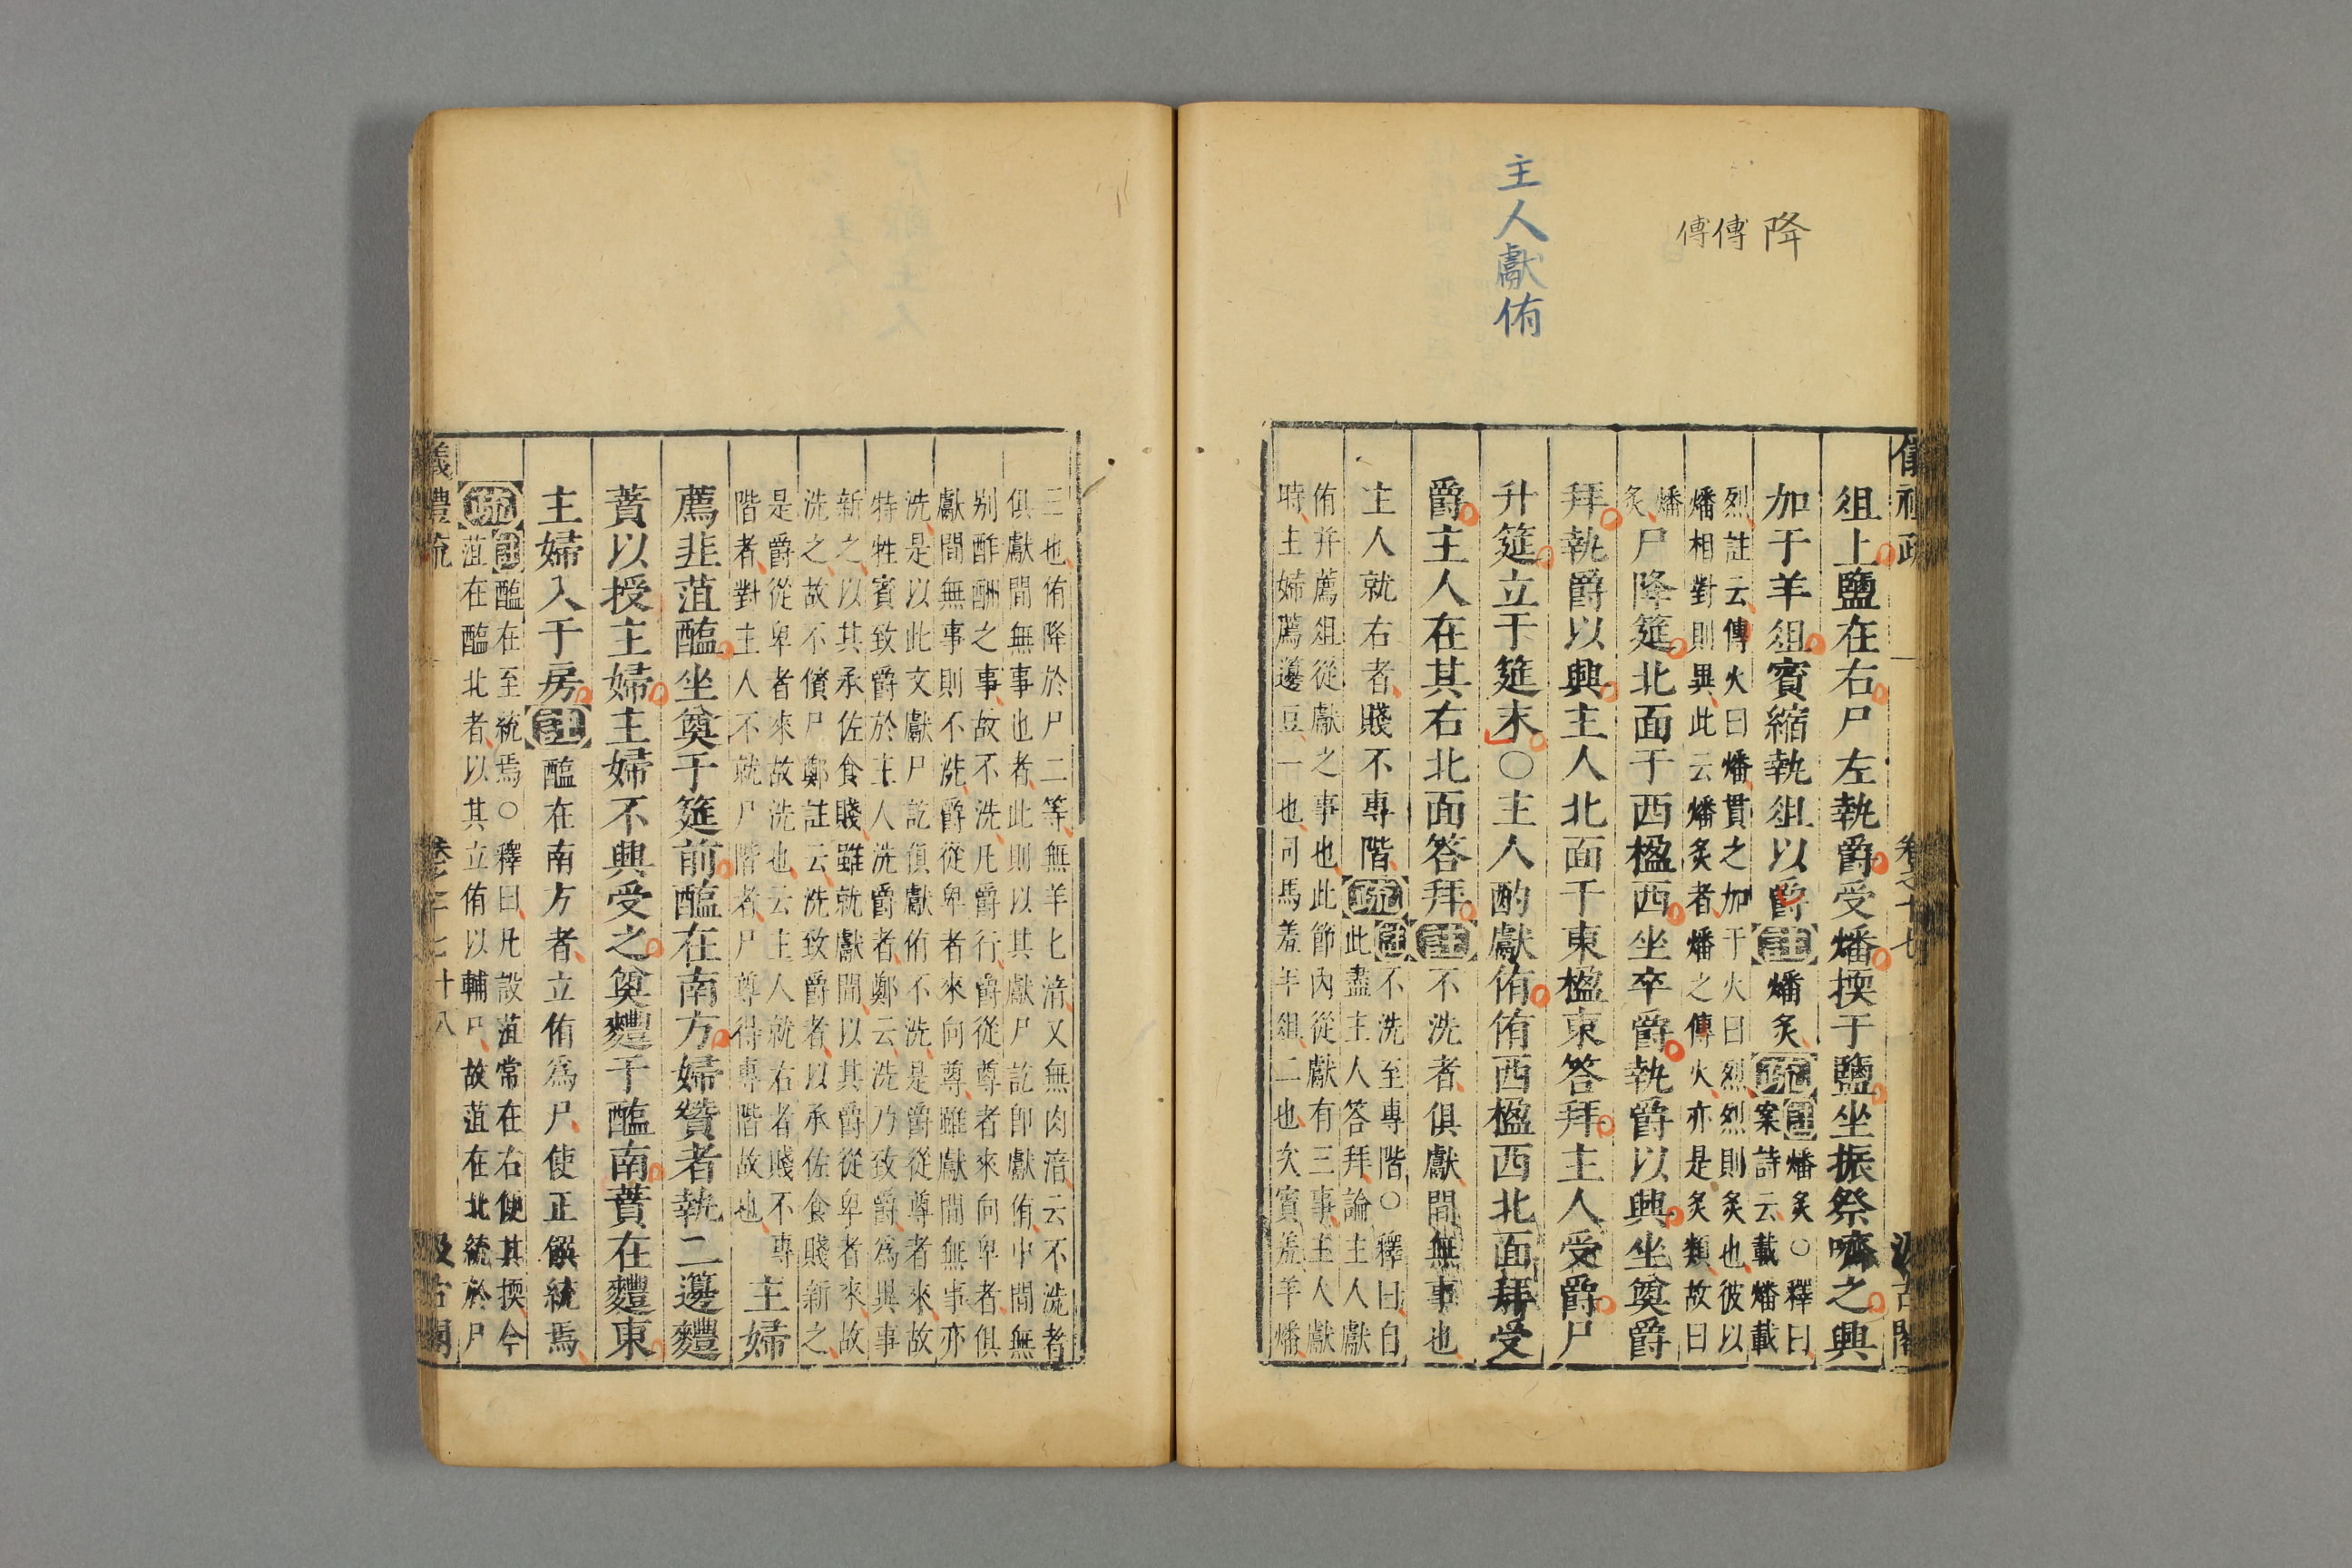 降
傅傅
主人獻侑
俎上鹽在右尸左執爵受燔擩于鹽坐振祭嚌之興
加于羊俎賓縮執俎以爵註燔炙疏註燔炙○釋曰
案詩云載燔載
烈註云傅火曰燔貫之加于火曰烈烈則炙也彼以
燔相對則異此云燔炙者燔之傅火亦是炙類故曰
燔
炙尸降筵北面于西楹西坐卒爵執爵以興坐奠爵
拜執爵以興主人北面于東楹東答拜主人受爵尸
升筵立于筵末○主人酌獻侑侑西楹西北面拜受
爵主人在其右北面答拜註不洗者俱獻間無事也
主人就右者賤不專階疏註不洗至專階○釋曰自
此盡主人答拜論主人獻
侑并薦俎從獻之事也此節內從獻有三事主人獻
時主婦薦籩豆一也司馬羞羊俎二也次賓羞羊燔
三也侑降於尸二等無羊匕湆又無肉湆云不洗者
俱獻間無事也者此則以其獻尸訖卽獻侑中間無
别酢酬之事故不洗凡爵行爵從尊者來向卑者俱
獻間無事則不洗爵從卑者來向尊雖獻間無事亦
洗是以此文獻尸訖俱獻侑不洗是爵從尊者來故
特牲賓致爵於主人洗爵者鄭云洗乃致爵爲異事
新之以其承佐食賤雖就獻間以其爵從卑者來故
洗之故不儐尸鄭註云洗致爵者以承佐食賤新之
是爵從卑者來故洗也云主人就右者賤不專
階者對主人不就尸階者尸尊得專階故也主婦
薦韭菹醢坐奠于筵前醢在南方婦贊者執二籩麷
蕡以授主婦主婦不興受之奠麷于醢南蕡在麷東
主婦入于房註醢在南方者立侑爲尸使正饌統焉
疏註醢在至統焉○釋曰凡設菹常在右便其擩今
菹在醢北者以其立侑以輔尸故菹在北統於尸